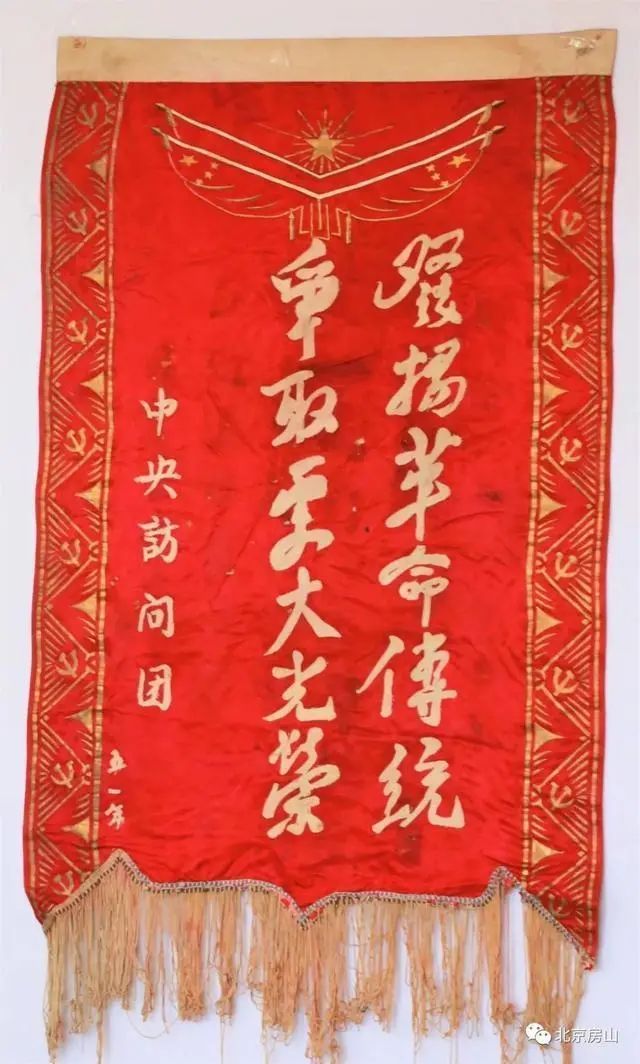 發揚革命傳統
争取更大光榮
中央訪问团
五一年
北京房山